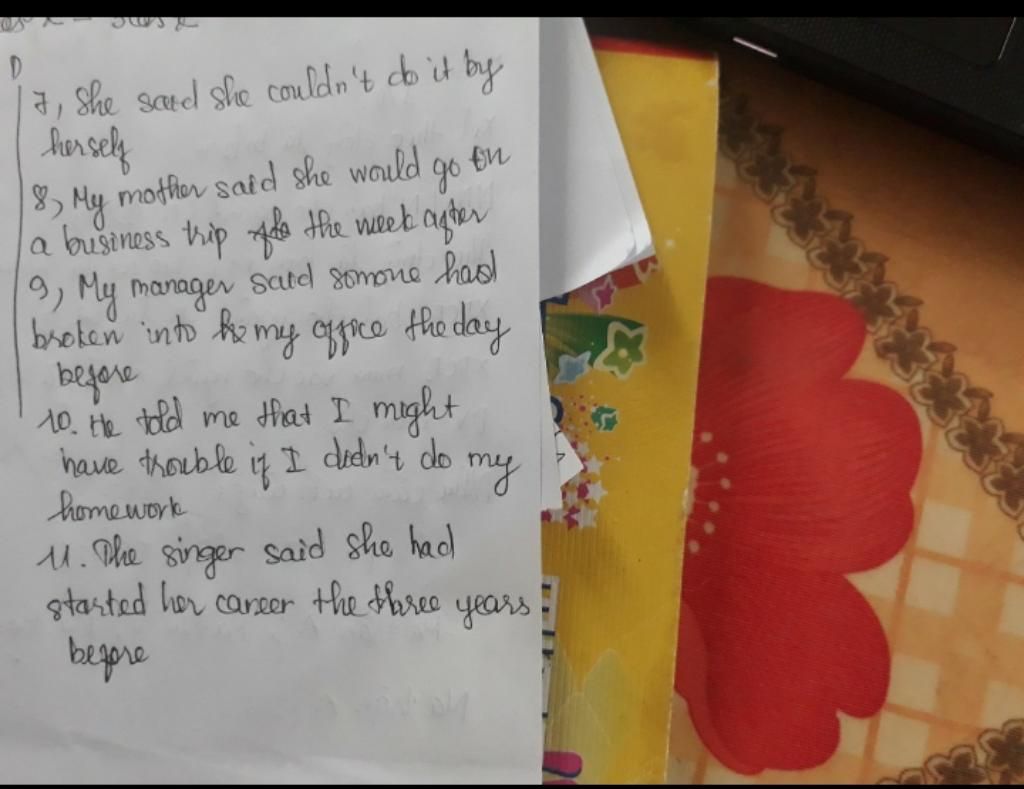 D
7, She said she couldn't do it by
herself
8, My mother said she would go on
a business trip the week after
9, My manager said somone had
broken into my office the day
before
10. He told me that I might
have trouble if I didn't do my
homework
11. The singer said she had
started her career the three years
before